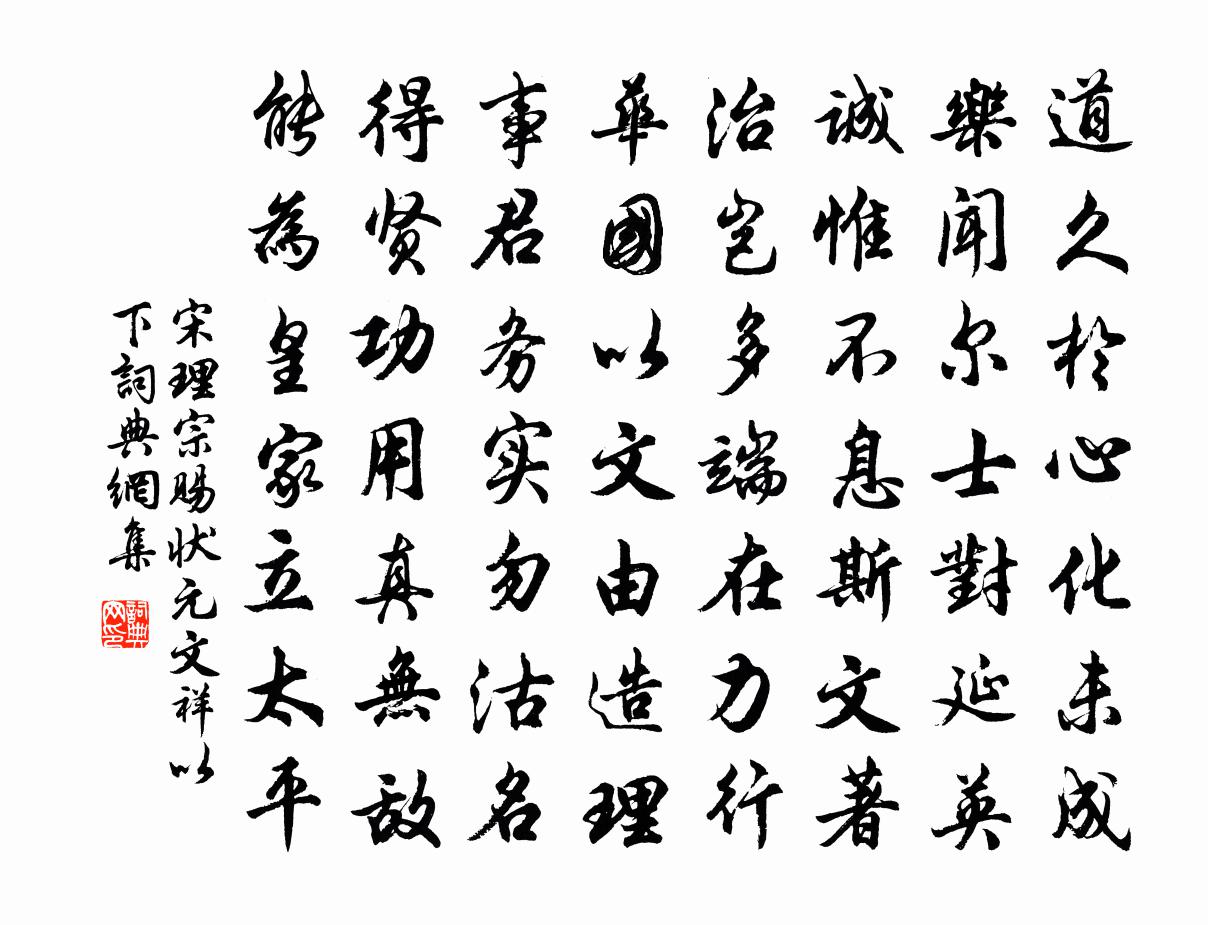 道久於心化未成
樂聞尔士對延英
誠惟不息斯文著
治岂多端在力行
華國以文由造理
事君务实勿沽名
得贤功用真無敌
能為皇家立太平
宋理宗賜状元文祥以
下詞典網集
詞典
网印